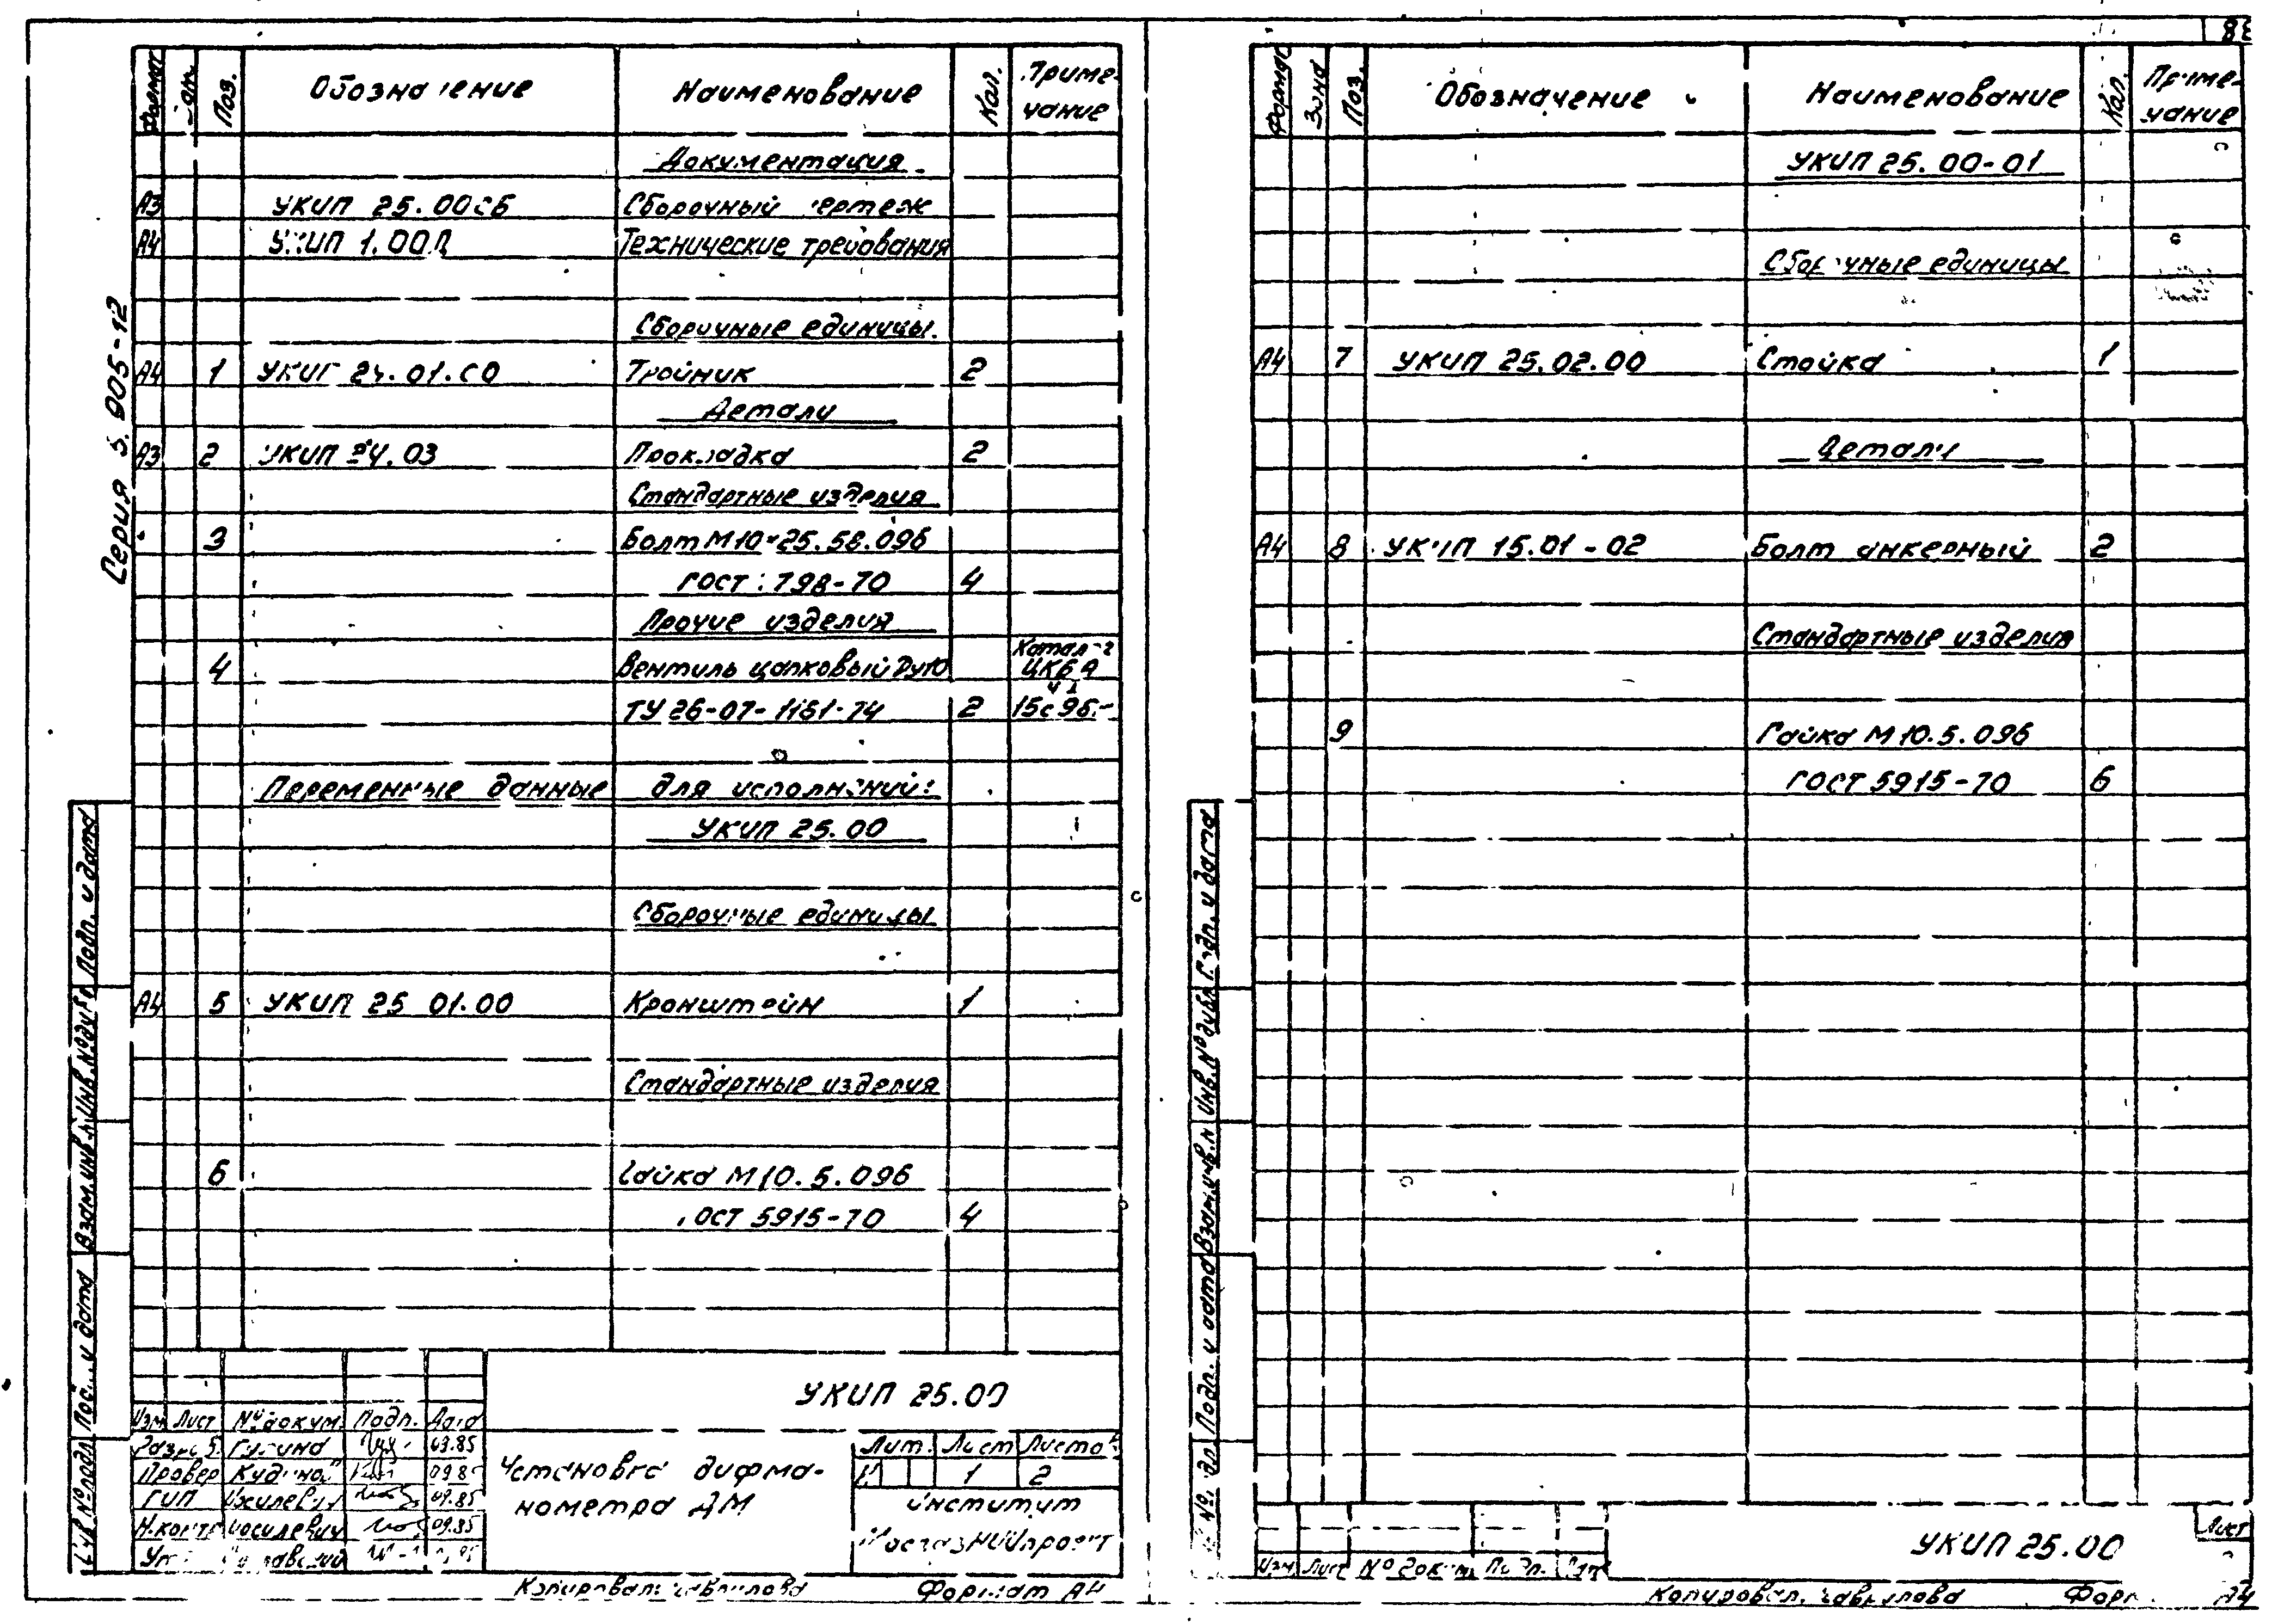 Серия 5.905-12
Формат Поз. Обозначение Наименование Кол. Приме-
чание
Документация
А3 УКИП 25.00СБ Сборочный чертеж
А4 УКИП 1.00Д Технические требования
Сборочные единицы
А4 1 УКИП 24.01.00 Тройник 2
Детали
А3 2 УКИП 24.03 Прокладка 2
Стандартные изделия
3 Болт М10×25.58.096
ГОСТ 7798-70 4
Прочие изделия
Каталог
4 Вентиль цапковый Ду10 ЦКБА
ТУ 26-07-1161-74 2
Переменные данные для исполнений:
УКИП 25.00
Сборочные единицы
А4 5 УКИП 25.01.00 Кронштейн 1
Стандартные изделия
6 Гайка М10.5.096
ГОСТ 5915-70 4
Инв. № подл. Подп. и дата Взам. инв. № Инв. № дубл. Подп. и дата
УКИП 25.00
Изм Лист № докум. Подп. Дата
Разраб. 09.85
Провер 09.85
ГИП 09.85
Н.контр Иосилевич 09.85
Утв
Установка дифма-
нометра ДМ
Лит. Лист Листов
1 2
институт
МосгазНИИпроект
Копировал: Гаврилова Формат А4
38
Формат Зона Поз. Обозначение Наименование Кол. Приме-
чание
УКИП 25.00-01
Сборочные единицы
А4 7 УКИП 25.02.00 Стойка 1
Детали
А4 8 УКИП 15.01-02 Болт анкерный 2
Стандартные изделия
9 Гайка М10.5.096
ГОСТ 5915-70 6
Инв. № подл. Подп. и дата Взам. инв. № Инв. № дубл. Подп. и дата
Изм Лист № докум. Подп. Дата
УКИП 25.00
Лист
Копировал: Гаврилова Формат А4